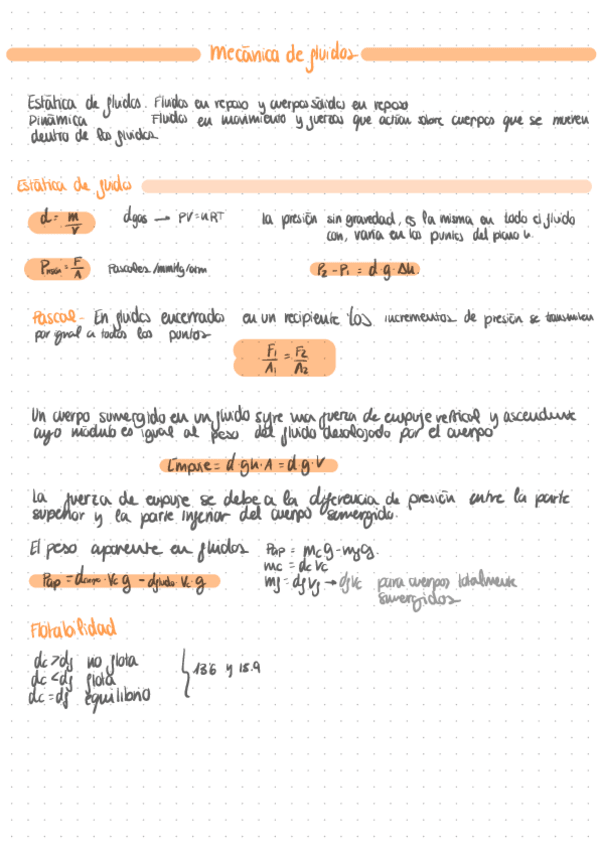 mecánica de fluidos
Estática de fluidos. Fluidos en reposo y cuerpos sólidos en reposo
Dinámica Fluidos en movimiento y fuerzas que actúan sobre cuerpos que se mueven
dentro de los fluidos.
Estática de fluido
d = m/V dgas → PV=nRT la presión sin gravedad, es la misma en todo el fluido
con, varía en los puntos del plano
P = F/A Pascales/mmHg/atm P2 - P1 = d·g·Δh
Pascal - En fluidos encerrados en un recipiente los incrementos de presión se transmiten
por igual a todos los puntos
F1/A1 = F2/A2
Un cuerpo sumergido en un fluido sufre una fuerza de empuje vertical y ascendente
cuyo módulo es igual al peso del fluido desalojado por el cuerpo
Empuje = d·gh·A = d·g·V
La fuerza de empuje se debe a la diferencia de presión entre la parte
superior y la parte inferior del cuerpo sumergido.
El peso aparente en fluidos Pap = mcg - mfg.
mc = dcVc
Pap = dcuerpo·Vc g - dfluido·Vc g mf = dfVf → dfVc para cuerpos totalmente
sumergidos
Flotabilidad
dc > df no flota
dc < df flota 13.6 y 15.9
dc = df equilibrio